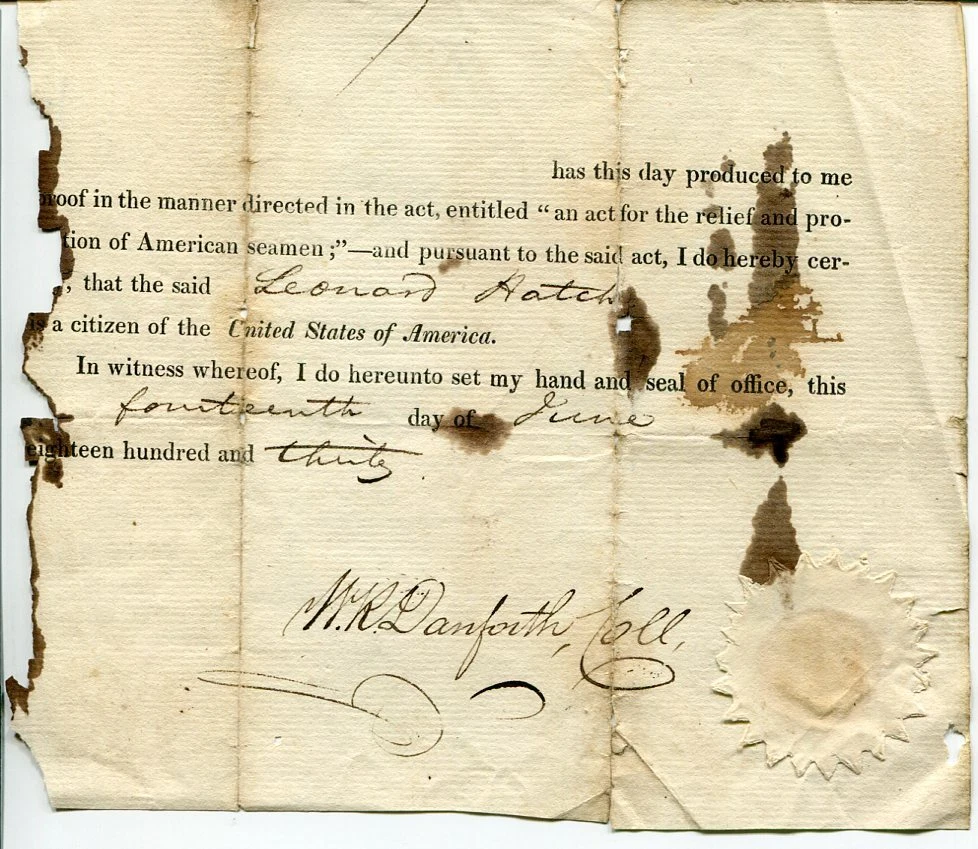 has this day produced to me
proof in the manner directed in the act, entitled "an act for the relief and pro-
tion of American seamen;"—and pursuant to the said act, I do hereby cer-
, that the said Leonard Hatch
is a citizen of the United States of America.
In witness whereof, I do hereunto set my hand and seal of office, this
fourteenth day of June
eighteen hundred and thirty
W.R. Danforth, Coll,